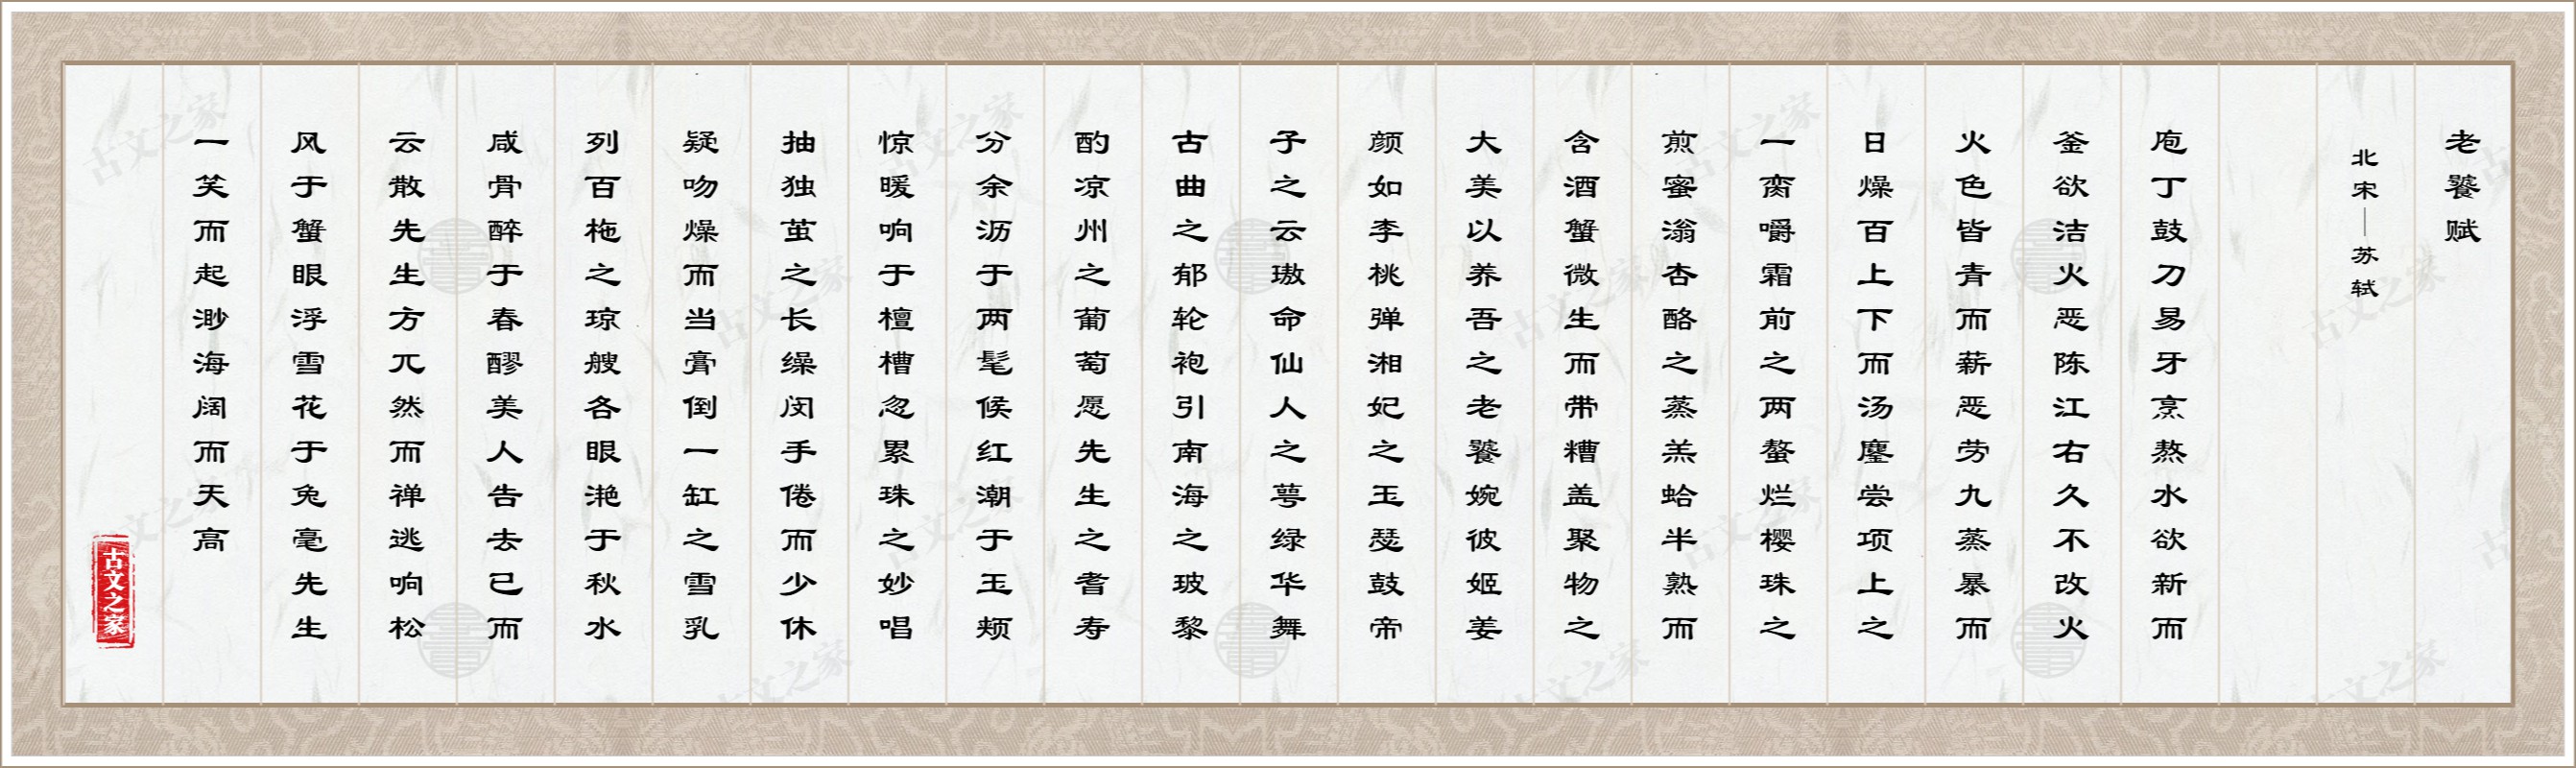 老饕赋
北宋—苏轼
庖丁鼓刀易牙烹熬水欲新而
釜欲洁火恶陈江右久不改火
火色皆青而薪恶劳九蒸暴而
日燥百上下而汤鏖尝项上之
一脔嚼霜前之两螯烂樱珠之
煎蜜滃杏酪之蒸羔蛤半熟而
含酒蟹微生而带糟盖聚物之
大美以养吾之老饕婉彼姬姜
颜如李桃弹湘妃之玉瑟鼓帝
子之云璈命仙人之萼绿华舞
古曲之郁轮袍引南海之玻黎
酌凉州之葡萄愿先生之耆寿
分余沥于两髦候红潮于玉颊
惊暖响于檀槽忽累珠之妙唱
抽独茧之长缲闵手倦而少休
疑吻燥而当膏倒一缸之雪乳
列百柂之琼艘各眼滟于秋水
咸骨醉于春醪美人告去已而
云散先生方兀然而禅逃响松
风于蟹眼浮雪花于兔毫先生
一笑而起渺海阔而天高
古文之家